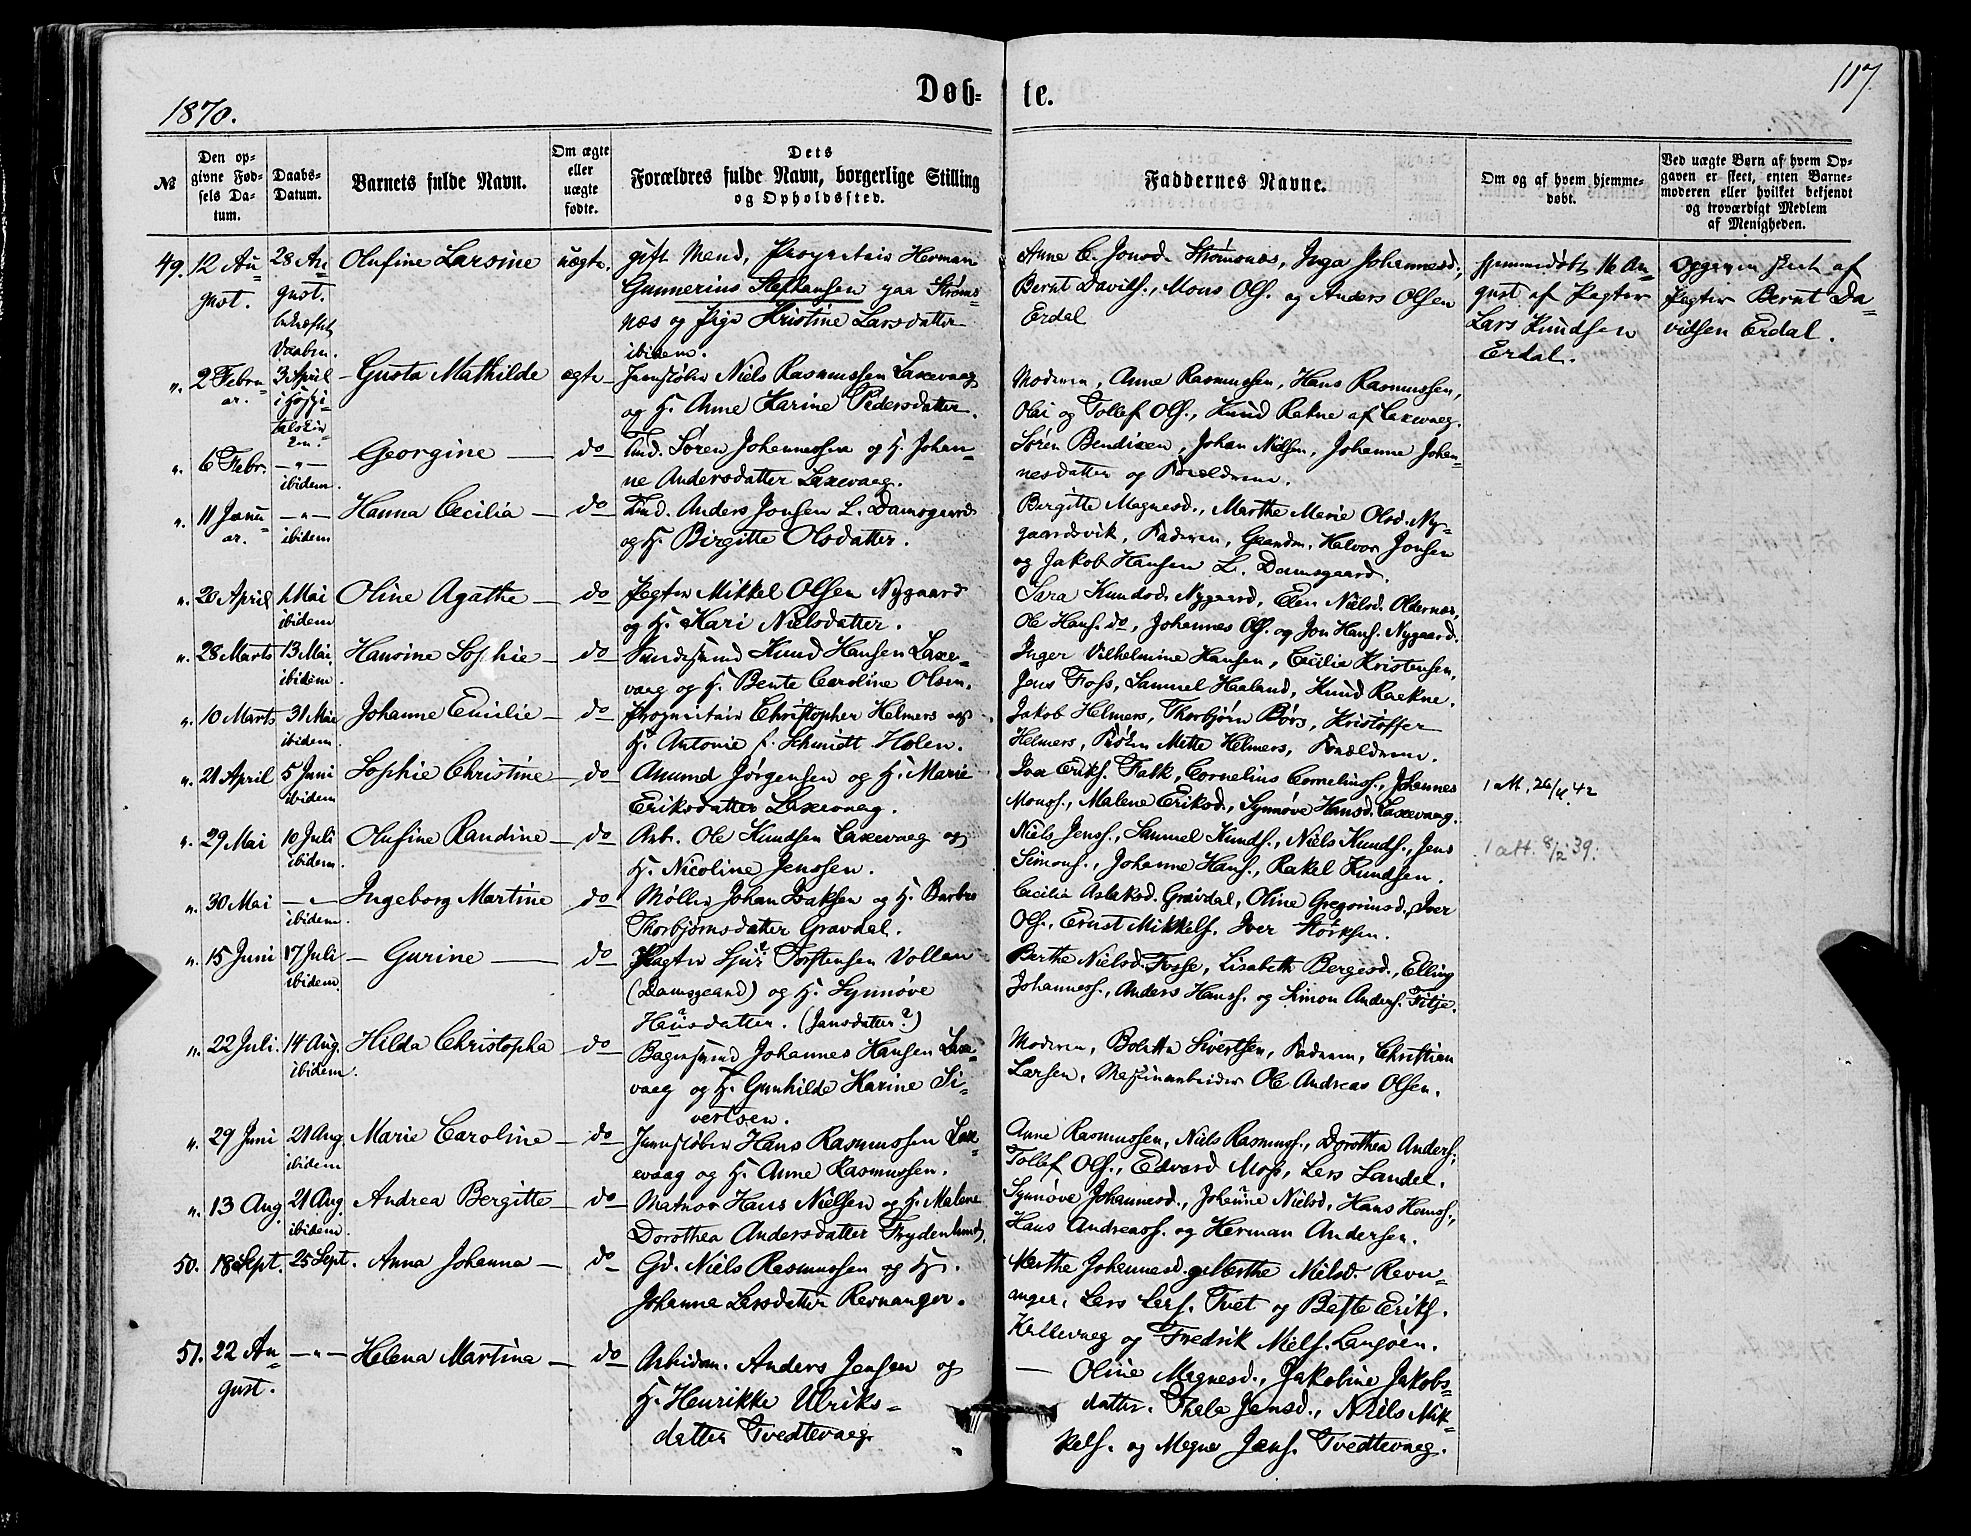 1870.
Døb-
te.
117.
№
Den op-
givne Fød-
sels Da-
tum.
Daabs-
Datum.
Barnets fulde Navn.
Om ægte
eller
uægte
fødte.
Dets
Forældres fulde Navn, borgerlige Stilling
og Opholdssted.
Faddernes Navne.
Om og af hvem hjemme-
døbt.
Ved uægte Børn af hvem Op-
gaven er skeet, enten Barne-
moderen eller hvilket bekjendt
og troværdigt Medlem
af Menigheden.
49.
12 Au-
gust.
28 Au-
gust.
Olufine Larsine
uægte.
gift Mand, Proprietair Herman
Gunnerius Steffansen paa Strøms-
næs og Pige Kristine Larsdatter
ibidem.
Anne C. Jonsd. Strømsnæs, Inga Johannesd.,
Bernt Davids., Mons Ols. og Anders Olsen
Erdal
hjemmedøbt 16 Au-
gust af Pagter
Lars Knudsen
Erdal.
Opgaven skeet af
Pagter Bernt Da-
vidsen Erdal.
". 2 Febru-
ar.
3 April
i Hospi-
talskir-
ken.
Gusta Mathilde
ægte
Jernstøber Niels Rasmussen Laxevaag
og H. Anne Karine Pedersdatter.
Moderen, Anne Rasmussen, Hans Rasmussen,
Olai og Tollef Ols., Knud Rekne af Laxevaag.
". 6 Febr.
— " —
ibidem.
Georgine —
do
Ind. Søren Johannessen og H. Johan-
ne Andersdatter Laxevaag.
Søren Bendixen, Johan Nielsen, Johanne Johan-
nesdatter og Forældrene.
". 11 Janu-
ar.
— " —
ibidem
Hanna Cecilia —
do
Ind. Anders Jonsen L. Damsgaard
og H. Birgitte Olsdatter.
Birgitte Magnesd., Marthe Marie Olsd. Ny-
gaardsvik, Faderen, Gaardm. Halvor Jonsen
og Jakob Hansen L. Damsgaard.
". 20 April
1 Mai
ibidem
Oline Agathe —
do
Pagter Mikkel Olsen Nygaard
og H. Kari Nielsdatter.
Sara Knudsd. Nygaard, Elen Nielsd. Oldernæs,
Ole Hans. do, Johannes Ols. og Jon Hans. Nygaard.
". 28 Marts
13 Mai
ibidem.
Hansine Sophie —
do
Knud Hansen Laxe-
vaag og H. Bente Caroline Olsen.
Inger Vilhelmine Hansen, Cecilie Kristensen,
Jens Foss, Samuel Haaland, Knud Raekne.
". 10 Marts
31 Mai
ibidem.
Johanne Emilie —
do
Proprietair Christopher Helmers og
H. Antonie f. Schmidt Holen.
Jakob Helmers, Thorbjørn Børs, Kristoffer
Helmers, Frøken Mette Helmers, Forældrene.
". 21 April
5 Juni
ibidem
Sophie Christine —
do
Amund Jørgensen og H. Marie
Eriksdatter Laxevaag.
Iver Eriks. Falk, Cornelius Corneliuss., Johannes
Monss., Malene Eriksd., Synnøve Hansd. Laxevaag.
1 att. 26/4. 42
". 29 Mai
10 Juli
ibidem.
Olufine Randine —
do
Arb. Ole Knudsen Laxevaag og
H. Nicoline Jenssen.
Niels Jenss., Samuel Knuds., Niels Knuds., Jens
Simons., Johanne Hans., Rakel Knudsen.
1 att. 8/2 39.
". 30 Mai
— " —
ibidem.
Ingeborg Martine
do
Møller Johan Isaksen og H. Barbro
Thorbjørnsdatter Gravdal.
Cecilia Aslaksd. Gravdal, Oline Gregoriusd., Iver
Ols., Ernst Mikkels. Iver Størksen.
". 15 Juni
17 Juli
ibidem.
— Gurine —
do
Pagter Sjur Torstensen Vollan
(Damsgaard) og H. Synnøve
Hansdatter. (Jansdatter?)
Berthe Nielsd. Fosse, Lisabeth Bergesd., Elling
Johanness., Anders Hanss. og Simon Anders. Fitje.
". 22 Juli.
14 Aug.
ibidem.
Hilda Christopha
do
Bagersvend Johannes Hansen Laxe-
vaag og H. Gunhilde Karine Si-
vertsen.
Moderen, Bolette Sivertsen, Faderen, Christian
Larsen, Maskinarbeider Ole Andreas Olsen.
". 29 Juni
21 Aug.
ibidem
Marie Caroline —
do
Jernstøber Hans Rasmussen Lax-
evaag og H. Anne Rasmussen.
Anne Rasmussen, Niels Rasmuss., Dorothea Anders.,
Tollef Ols., Edvard Moss, Lars Sandal.
". 13 Aug.
21 Aug.
ibidem.
Andrea Bergitte —
do
Matros Hans Nielsen og H. Malene
Dorothea Andersdatter Frydenlund.
Synnøve Johannesd., Johanne Nielsd., Hans Hans.,
Hans Andreass. og Herman Andersen.
50.
18 Sept.
25 Sept.
Anna Johanna —
do
Gd. Niels Rasmussen og H.
Johanne Larsdatter Revnanger.
Marthe Johannesd. og Marthe Nielsd. Revn-
anger, Lars Lars. Tvet og Baste Eriks.
Hillevaag og Fredrik Niels. Langøen.
51.
22 Au-
gust.
— " —
Helena Martina —
do
Arbeidsm. Anders Jensen og
H. Henrikke Ulriks-
datter Tvedtevaag
— Oline Magnesd., Jakobine Jakobs-
datter. Thala Jensd., Niels Mik-
kels. og Magne Jens. Tvedtevaag.